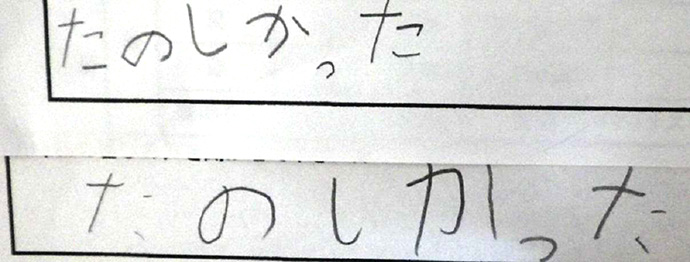 たのしかった
たのしかった